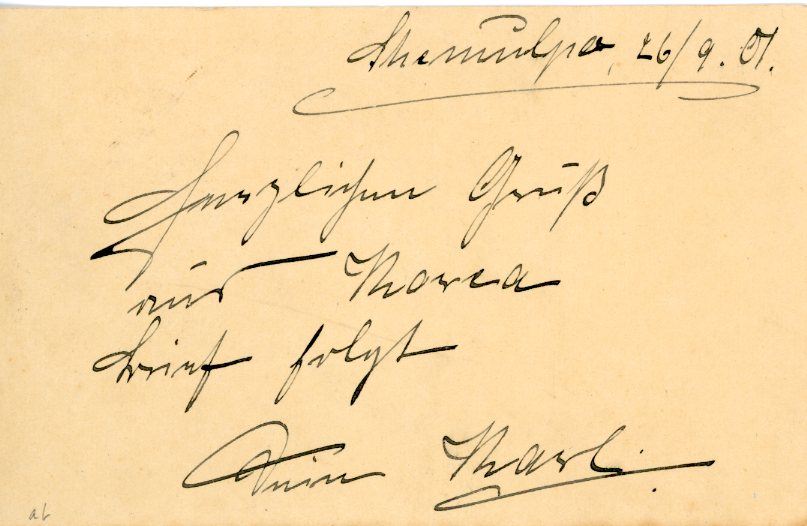 Chemulpo, 26/9. 01.
Herzlichen Gruß
aus Korea
Brief folgt
Dein Karl.